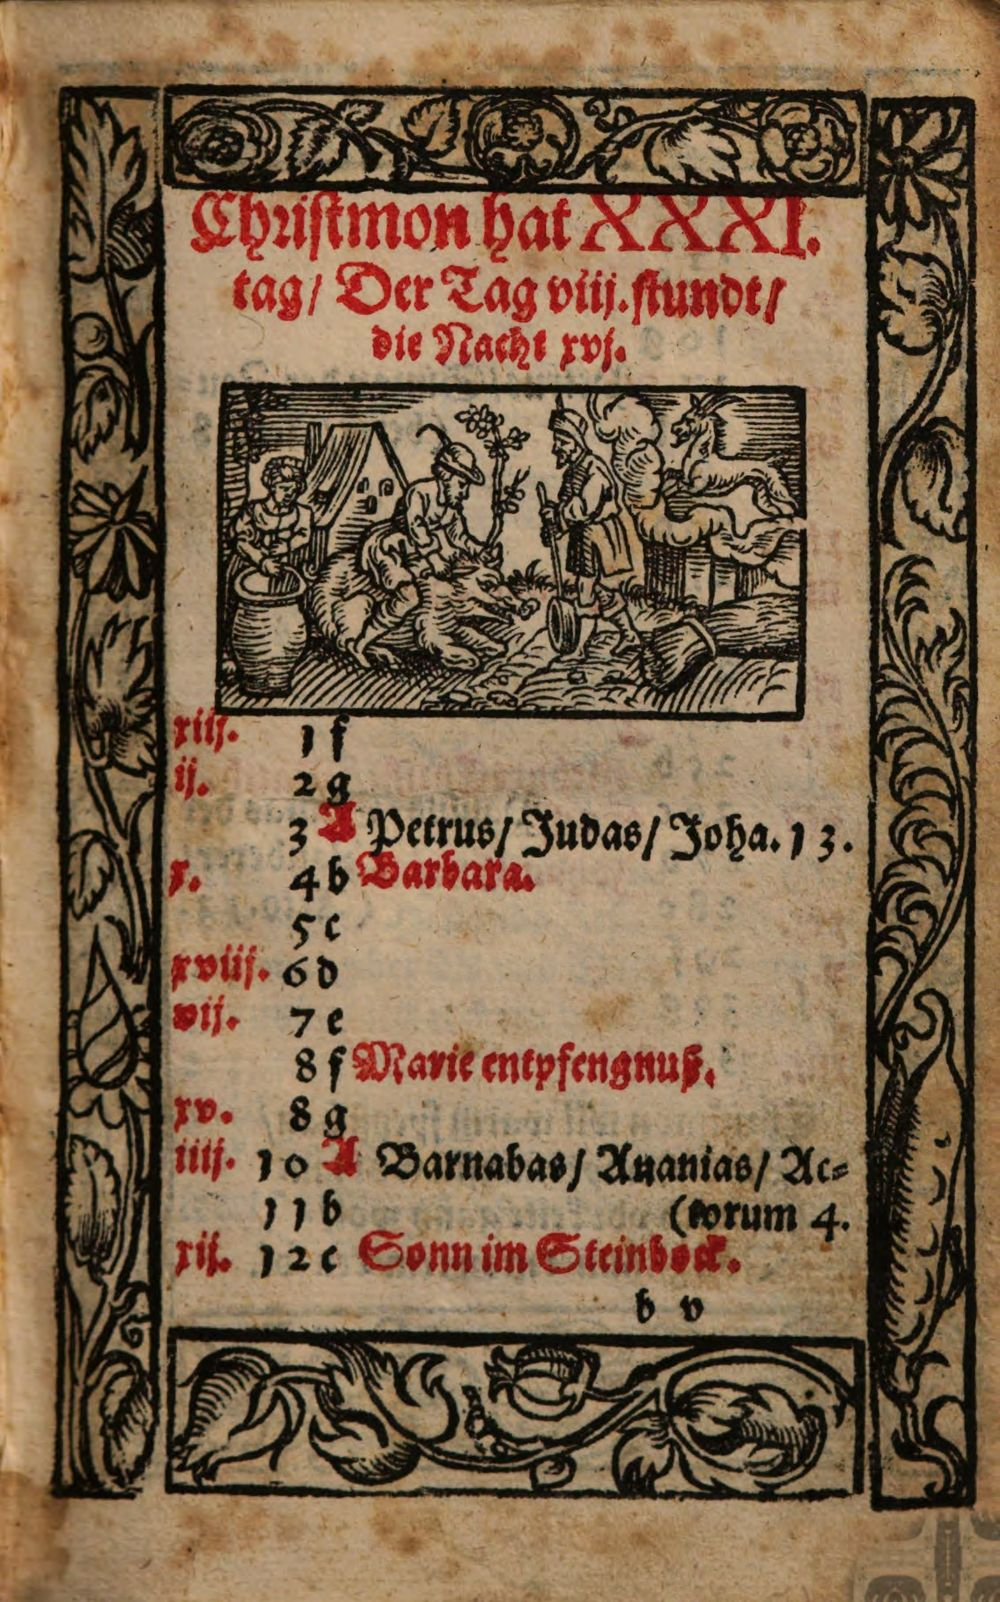 Christmon hat XXXI.
tag/ Der Tag viij. stundt/
die Nacht xvj.
xiij. 1 f
ij. 2 g
3 A Petrus/ Judas/ Joha. 13.
x. 4 b Barbara.
5 c
xviij. 6 d
vij. 7 e
8 f Marie entpfengnuß.
xv. 8 g
iiij. 10 A Barnabas/ Ananias/ Ac⸗
11 b (torum 4.
xij. 12 c Sonn im Steinbock.
b v